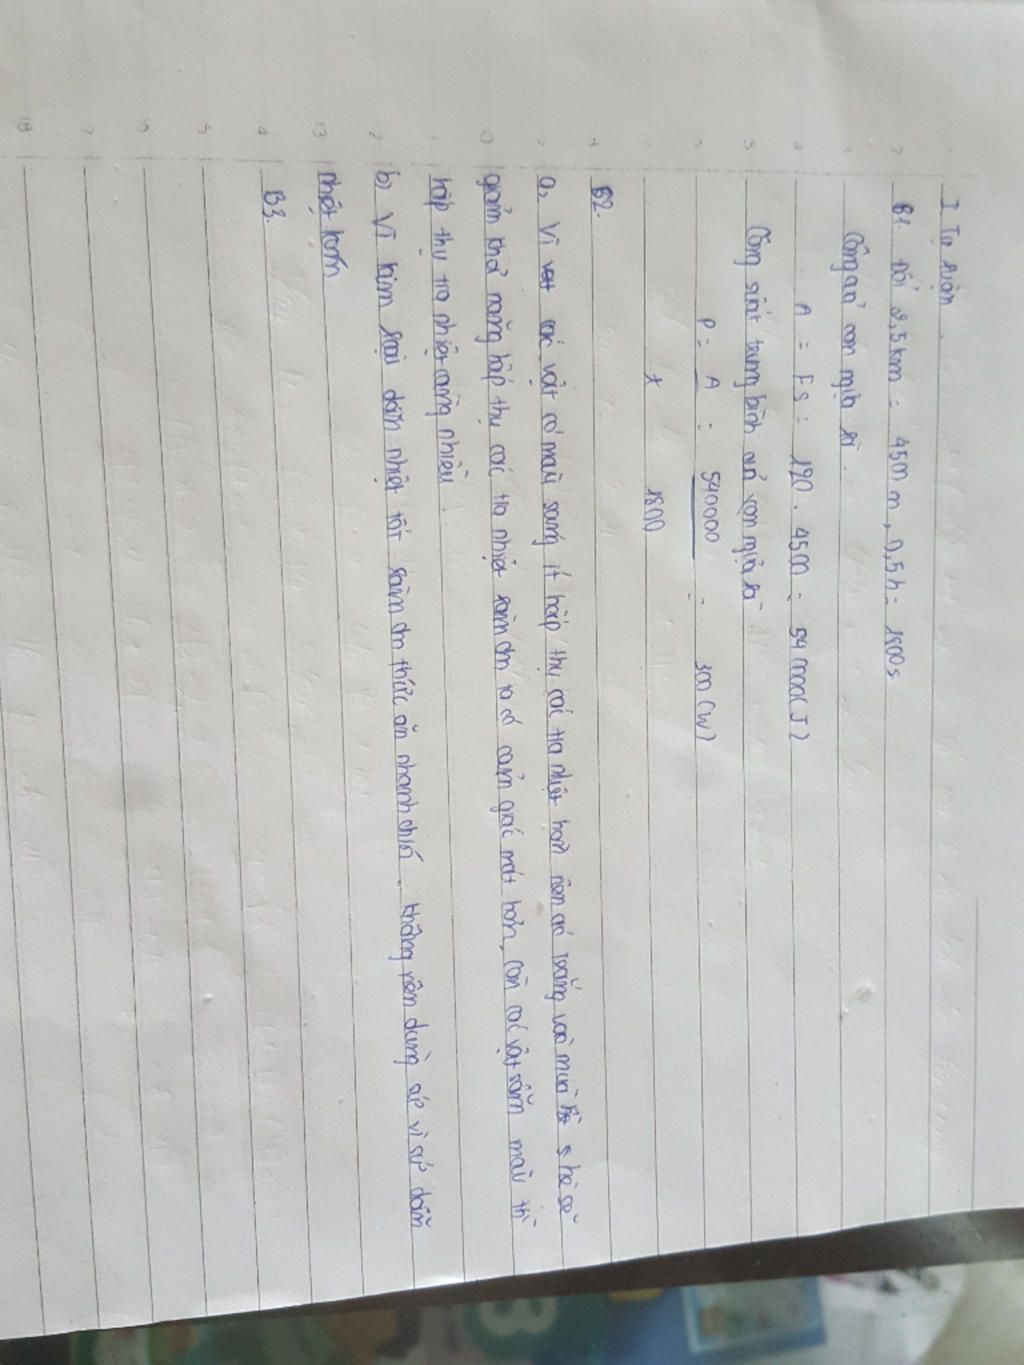 I Tự luận
B1. Đổi 2,5km = 4500 m, 0,5h = 1800s
Công của con ngựa là
A = Fs = 120 . 4500 = 540000(J)
Công suất trung bình của con ngựa là
P = A = 540000 = 300 (W)
t 1800
B2.
a, Vì các vật có màu sáng ít hấp thụ các tia nhiệt hơn nên áo trắng vào mùa hè sẽ
giảm khả năng hấp thụ các tia nhiệt làm cho ta có cảm giác mát hơn, còn các vật sẫm màu thì
hấp thụ tia nhiệt càng nhiều
b, Vì kim loại dẫn nhiệt tốt làm cho thức ăn nhanh chín. Không nên dùng sứ vì sứ dẫn
nhiệt kém
B3.